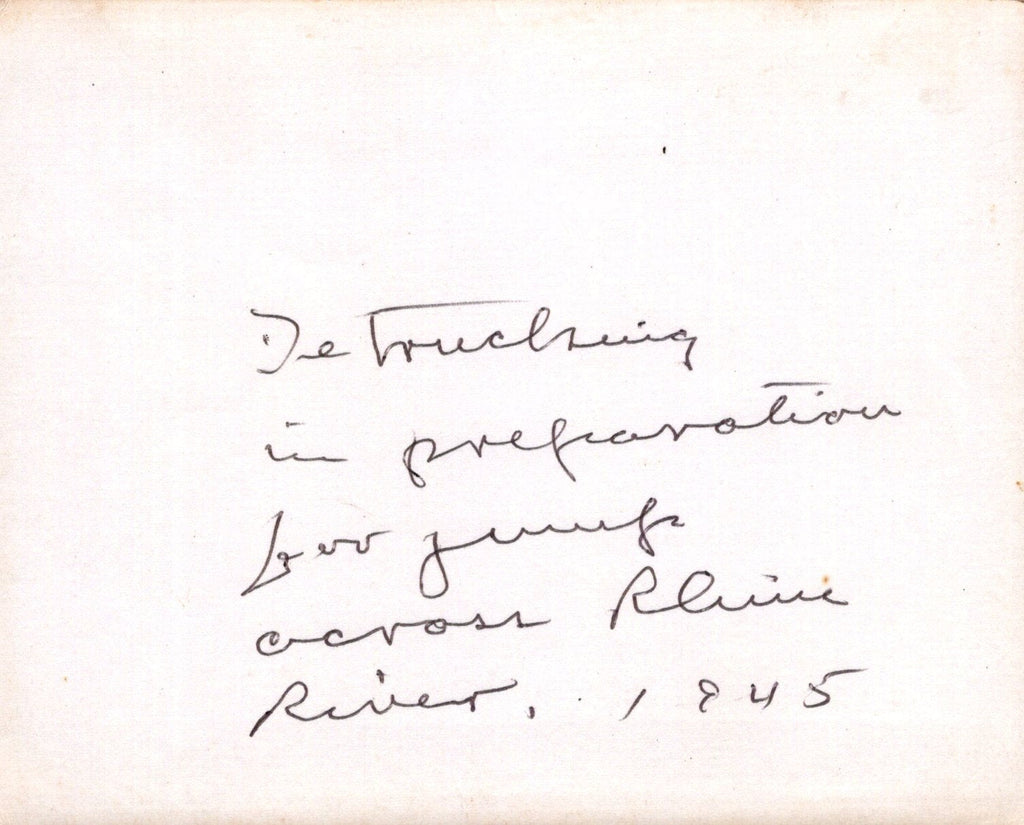 Detrucking
in preparation
for jump
across Rhine
River, 1945